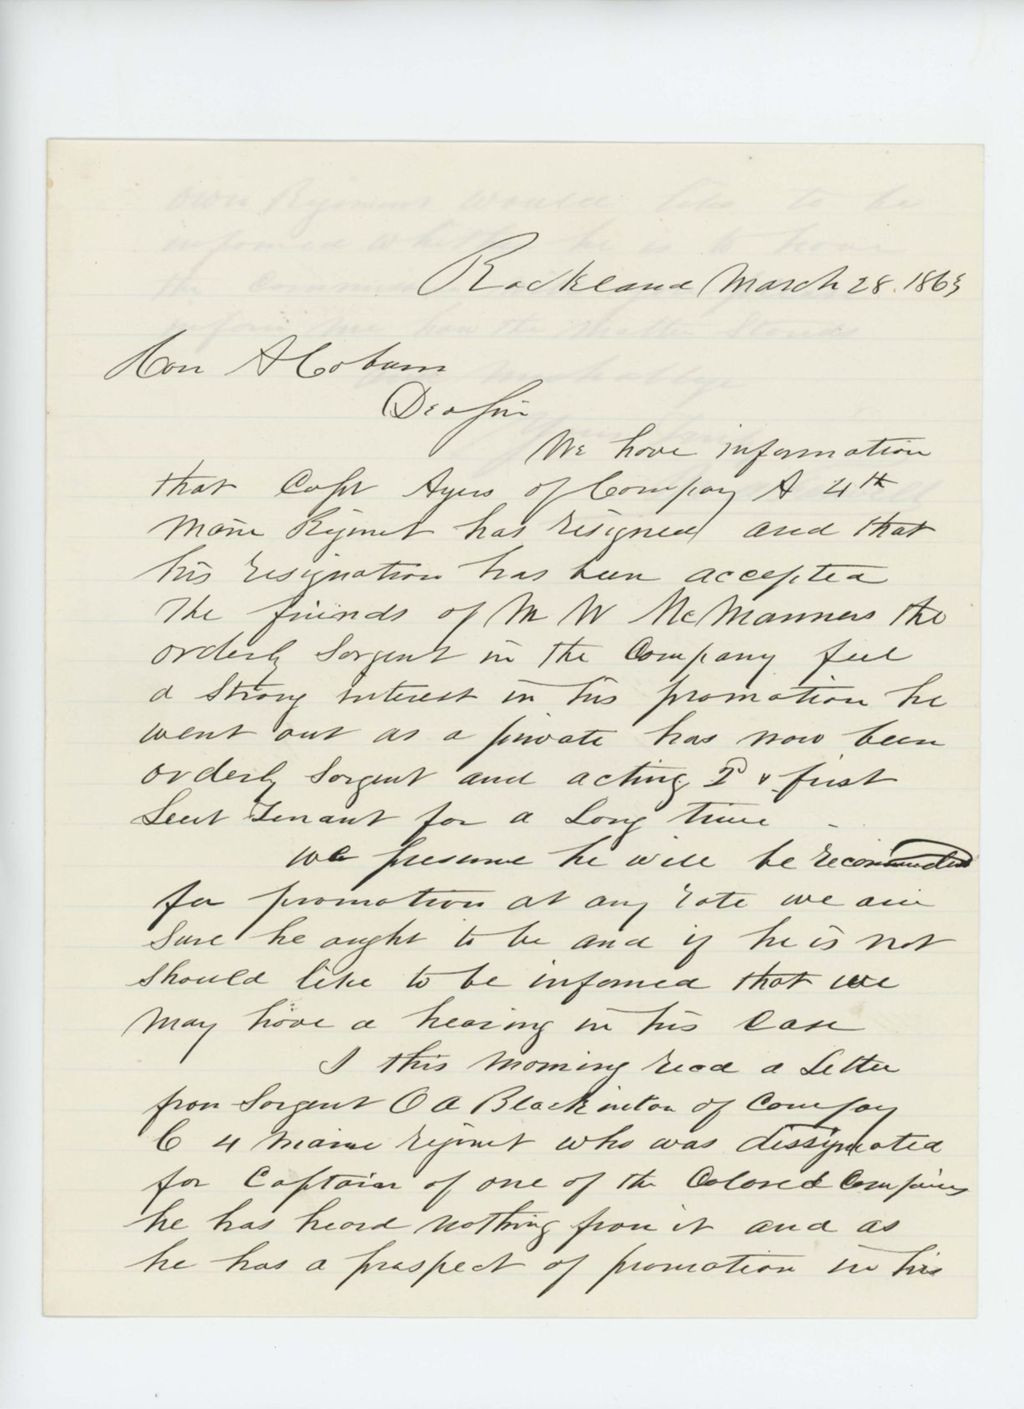 Rockland March 28. 1863
Hon A Coburn
Dear Sir
We have information
that Capt Ayers of Compay A 4th
Maine Regimet has resigned and that
his resignation has been accepted
The friends of M W McManners the
orderly Sorgent in the Company feel
a strong interest in his promotion he
went out as a private has now been
orderly Sorgent and acting & first
Leut Tenant for a Long time
we presume he will be recommended
for promotion at any rate we are
Sure he ought to be and if he is not
should like to be informed that we
may have a hearing in his case
I this morning read a Letter
from Sorgent O A Blackinton of Compay
C 4 Maine regimet who was dissignated
for Captain of one of the Colored Companies
he has heard nothing from it and as
he has a prospect of promotion in his